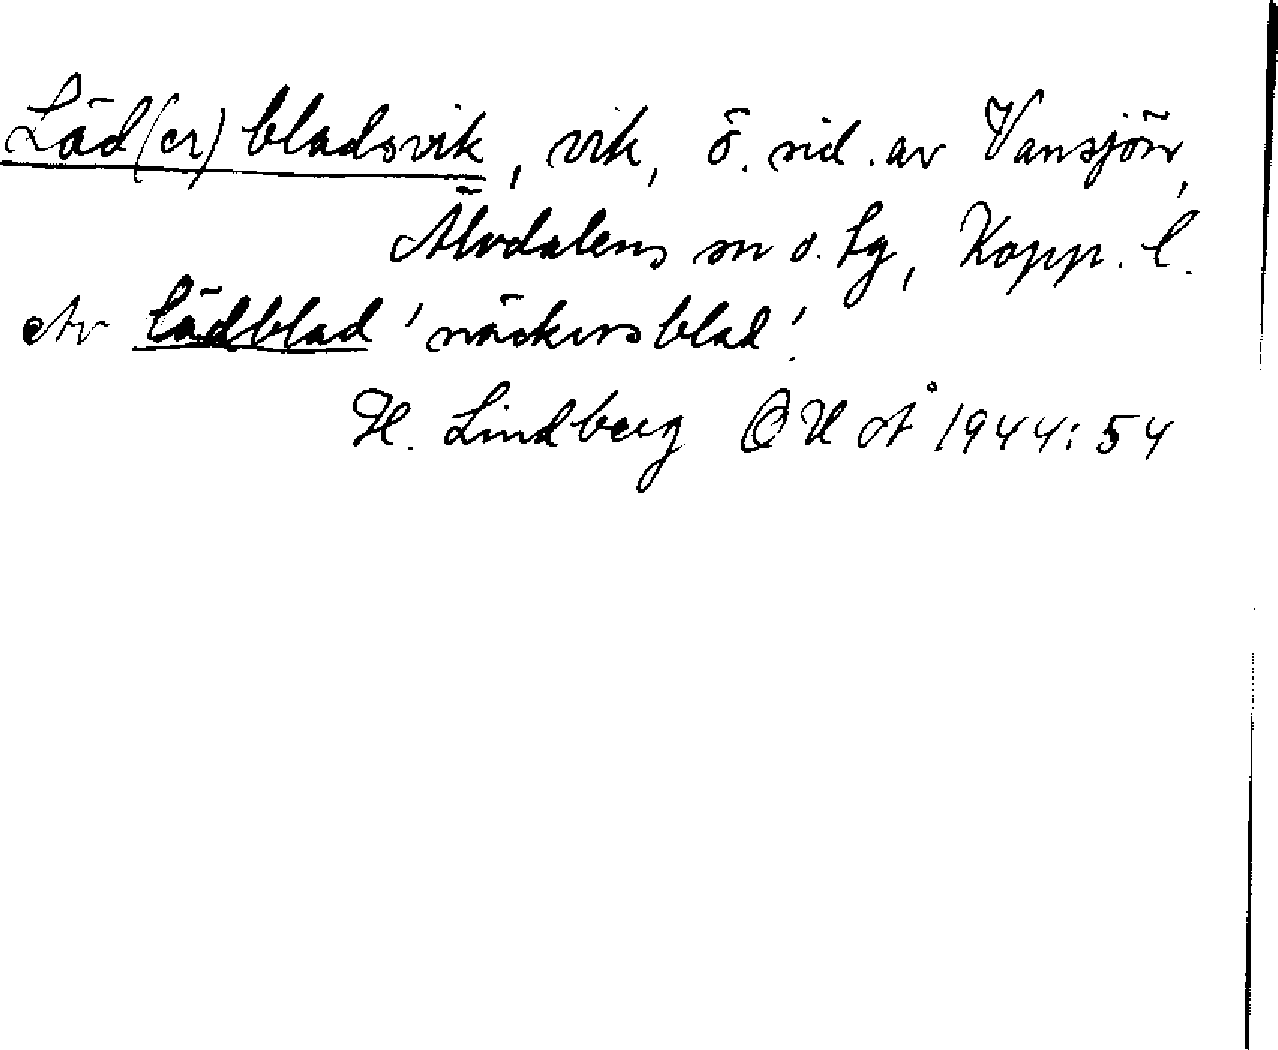 Läd(er)bladsvik, vik, ö. sid. av Vansjön,
Älvdalens sn o. tg, Kopp. l.
Av lädblad 'näckrosblad'.
H. Lindberg OUÅ 1944:54